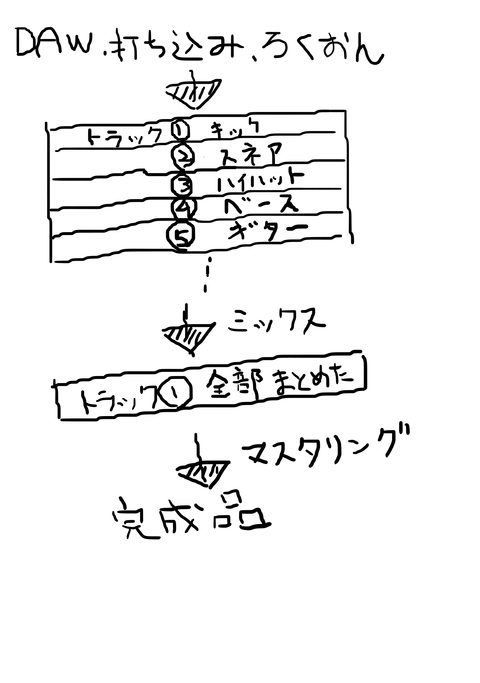 DAW.打ち込み、ろくおん
トラック① キック
② スネア
③ ハイハット
④ ベース
⑤ ギター
ミックス
トラック① 全部まとめた
マスタリング
完成品